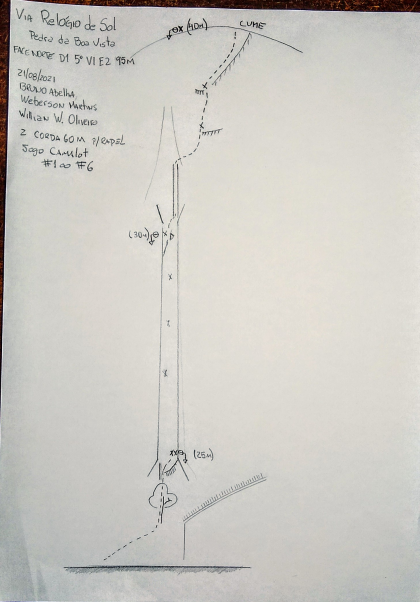 VIA RELÓGIO DE SOL
PEDRA DA BOA VISTA
FACE NORTE D1 5º VI E2 95M
21/08/2021
BRUNO ABELHA
WEBERSON MARTINS
WILLIAN W. OLIVEIRA
2 CORDA 60 M P/RAPEL
JOGO CAMALOT
#1 ao #6
(40M)
CUME
(30M)
(25M)